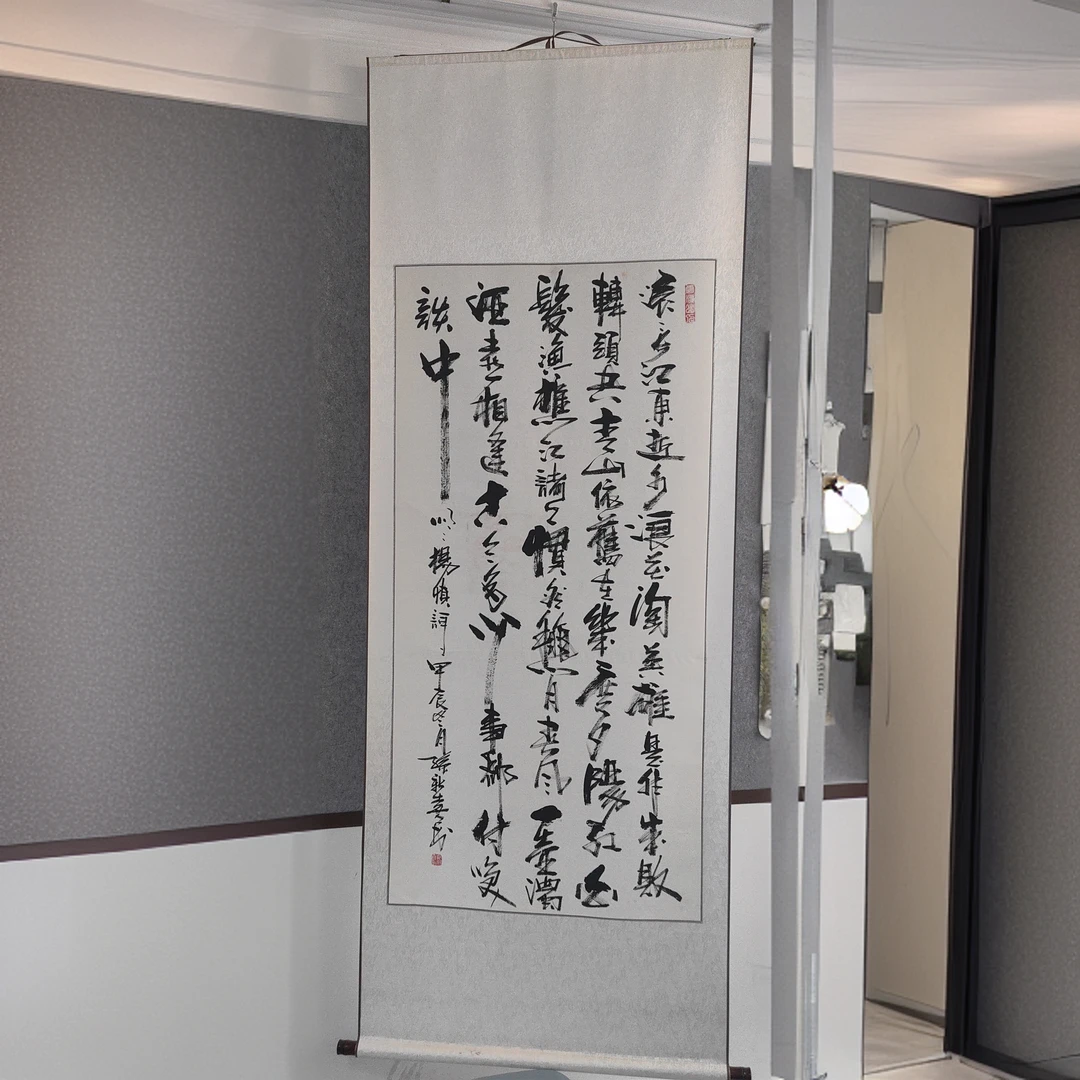 滚々长江東逝水浪花淘英雄是非成敗
轉頭空青山依舊在幾度夕陽红白
髮漁樵江渚上慣看秋月春风一壺濁
酒喜相逢古今多少事都付笑
談中
明楊慎詞甲辰冬月